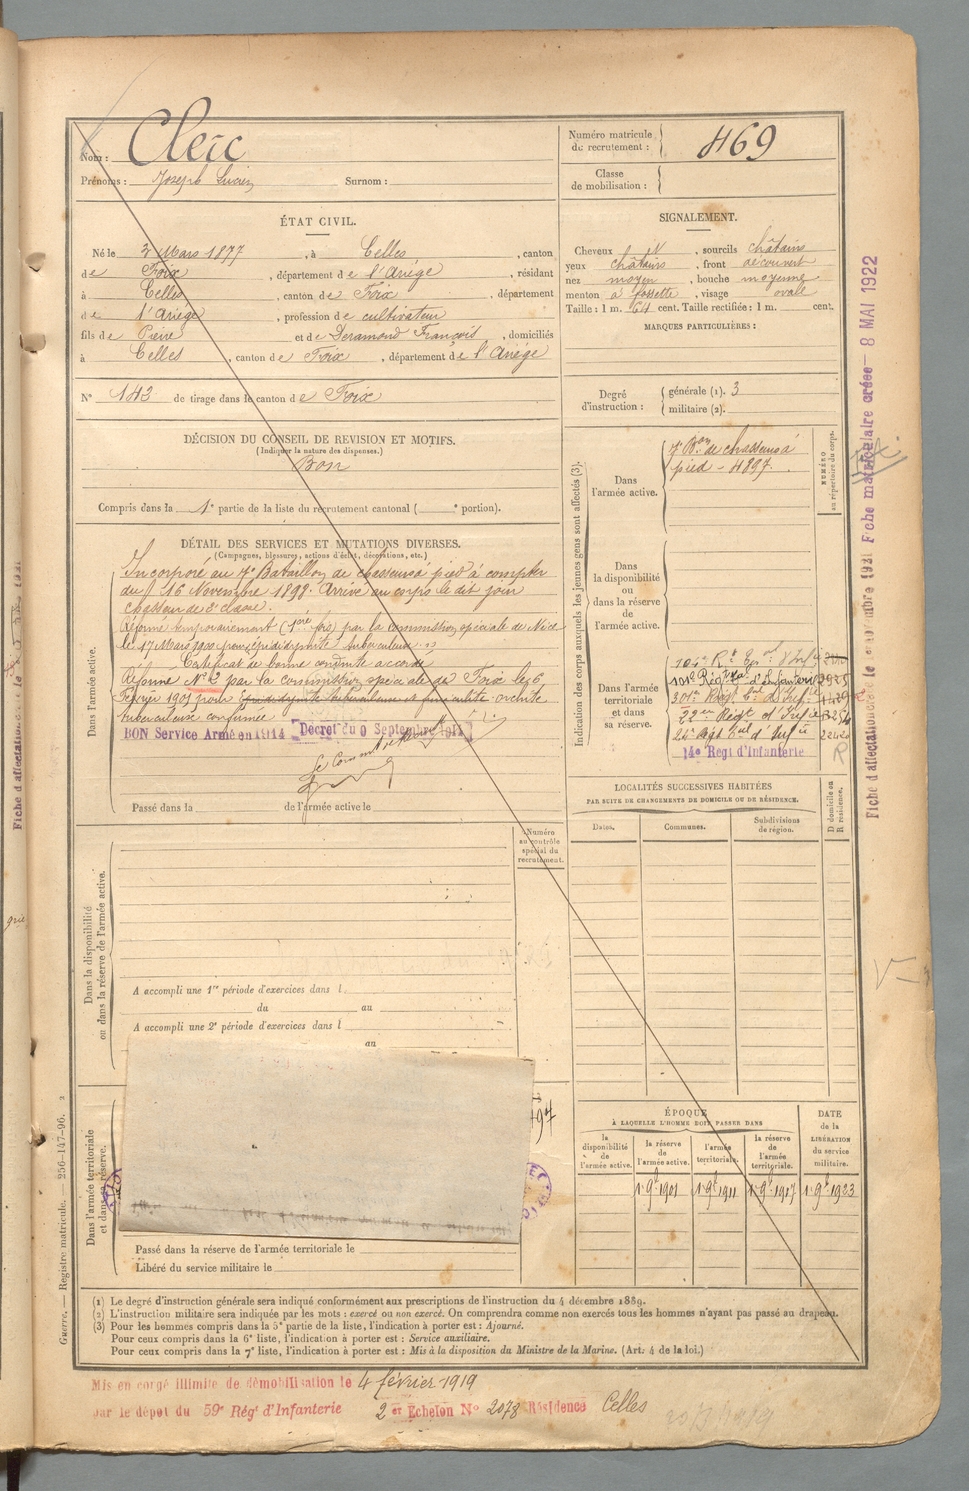 Nom : Cleïc
Prénoms : Joseph Lucien Surnom :
Numéro matricule de recrutement : 469
Classe de mobilisation :
ÉTAT CIVIL.
Né le 3 Mars 1877, à Celles, canton
de Foix, département de l'Ariége, résidant
à Celles, canton de Foix, département
de l'Ariége, profession de cultivateur
fils de Pierre et de Deramond François, domiciliés
à Celles, canton de Foix, département de l'Ariége
N° 143 de tirage dans le canton de Foix
SIGNALEMENT.
Cheveux N, sourcils châtains
yeux châtains, front découvert
nez moyen, bouche moyenne
menton à fossette, visage ovale
Taille : 1 m. 64 cent. Taille rectifiée : 1 m. cent.
MARQUES PARTICULIÈRES :
Degré d'instruction : générale (1). 3
militaire (2).
DÉCISION DU CONSEIL DE REVISION ET MOTIFS.
(Indiquer la nature des dispenses.)
Bon
Compris dans la 1e partie de la liste du recrutement cantonal ( e portion).
DÉTAIL DES SERVICES ET MUTATIONS DIVERSES.
(Campagnes, blessures, actions d'éclat, décorations, etc.)
Dans l'armée active.
Incorporé au 7e Bataillon de chasseurs à pied à compter
du 16 Novembre 1898. Arrivé au corps le dit jour
chasseur de 2e classe.
Réformé temporairement (1ere fois) par la commission spéciale de Nice
le 17 Mars 1900 pour épididymite tuberculeuse
Certificat de bonne conduite accordé
Réformé N° 2 par la commission spéciale de Foix le 6
Février 1901 pour Epididymite tuberculeuse et orchite
tuberculeuse confirmée
BON Service Armé en 1914 Décret du 9 Septembre 1914
Le Commandant
Passé dans la de l'armée active le
Indication des corps auxquels les jeunes gens sont affectés (3).
NUMÉRO au répertoire du corps.
Dans l'armée active.
7e Bon de chasseurs à
pied - 4897.
Dans la disponibilité ou dans la réserve de l'armée active.
Dans l'armée territoriale et dans sa réserve.
14e Regt d'Infanterie
R
LOCALITÉS SUCCESSIVES HABITÉES
PAR SUITE DE CHANGEMENTS DE DOMICILE OU DE RÉSIDENCE.
D domicile ou R résidence.
Dates. Communes. Subdivisions de région.
Numéro au contrôle spécial du recrutement.
Dans la disponibilité ou dans la réserve de l'armée active.
A accompli une 1re période d'exercices dans l
du au
A accompli une 2e période d'exercices dans l
au
Dans l'armée territoriale et dans sa réserve.
Passé dans la réserve de l'armée territoriale le
Libéré du service militaire le
ÉPOQUE
À LAQUELLE L'HOMME DOIT PASSER DANS
la disponibilité de l'armée active. la réserve de l'armée active. l'armée territoriale. la réserve de l'armée territoriale. DATE de la LIBÉRATION du service militaire.
1 9bre 1901 1 9bre 1911 1 9bre 1917 1 9bre 1923
(1) Le degré d'instruction générale sera indiqué conformément aux prescriptions de l'instruction du 4 décembre 1889.
(2) L'instruction militaire sera indiquée par les mots : exercé ou non exercé. On comprendra comme non exercés tous les hommes n'ayant pas passé au drapeau.
(3) Pour les hommes compris dans la 5e partie de la liste, l'indication à porter est : Ajourné.
Pour ceux compris dans la 6e liste, l'indication à porter est : Service auxiliaire.
Pour ceux compris dans la 7e liste, l'indication à porter est : Mis à la disposition du Ministre de la Marine. (Art. 4 de la loi.)
Guerre. — Registre matricule. — 256-147-96.
Mis en congé illimité de démobilisation le 4 février 1919
par le dépot du 59e Régt d'Infanterie
2e Echelon N° 2078 Résidence Celles
Fiche matriculaire créée 8 MAI 1922